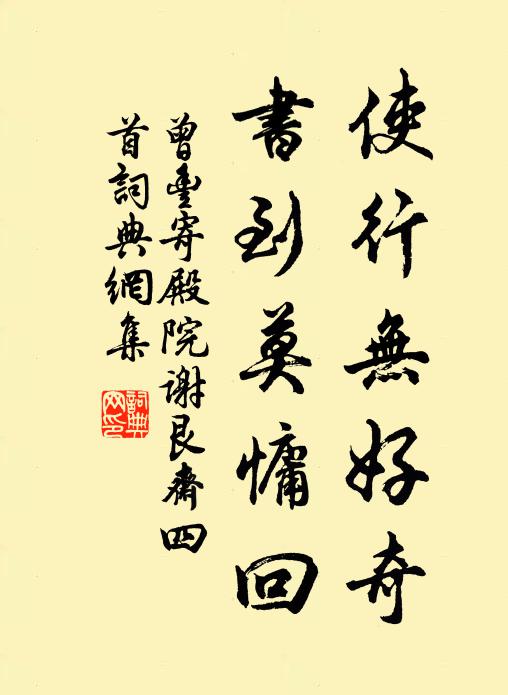 使行無好奇
書到莫慵回
曾豐寄殿院谢艮齋四
首詞典網集
詞典网印